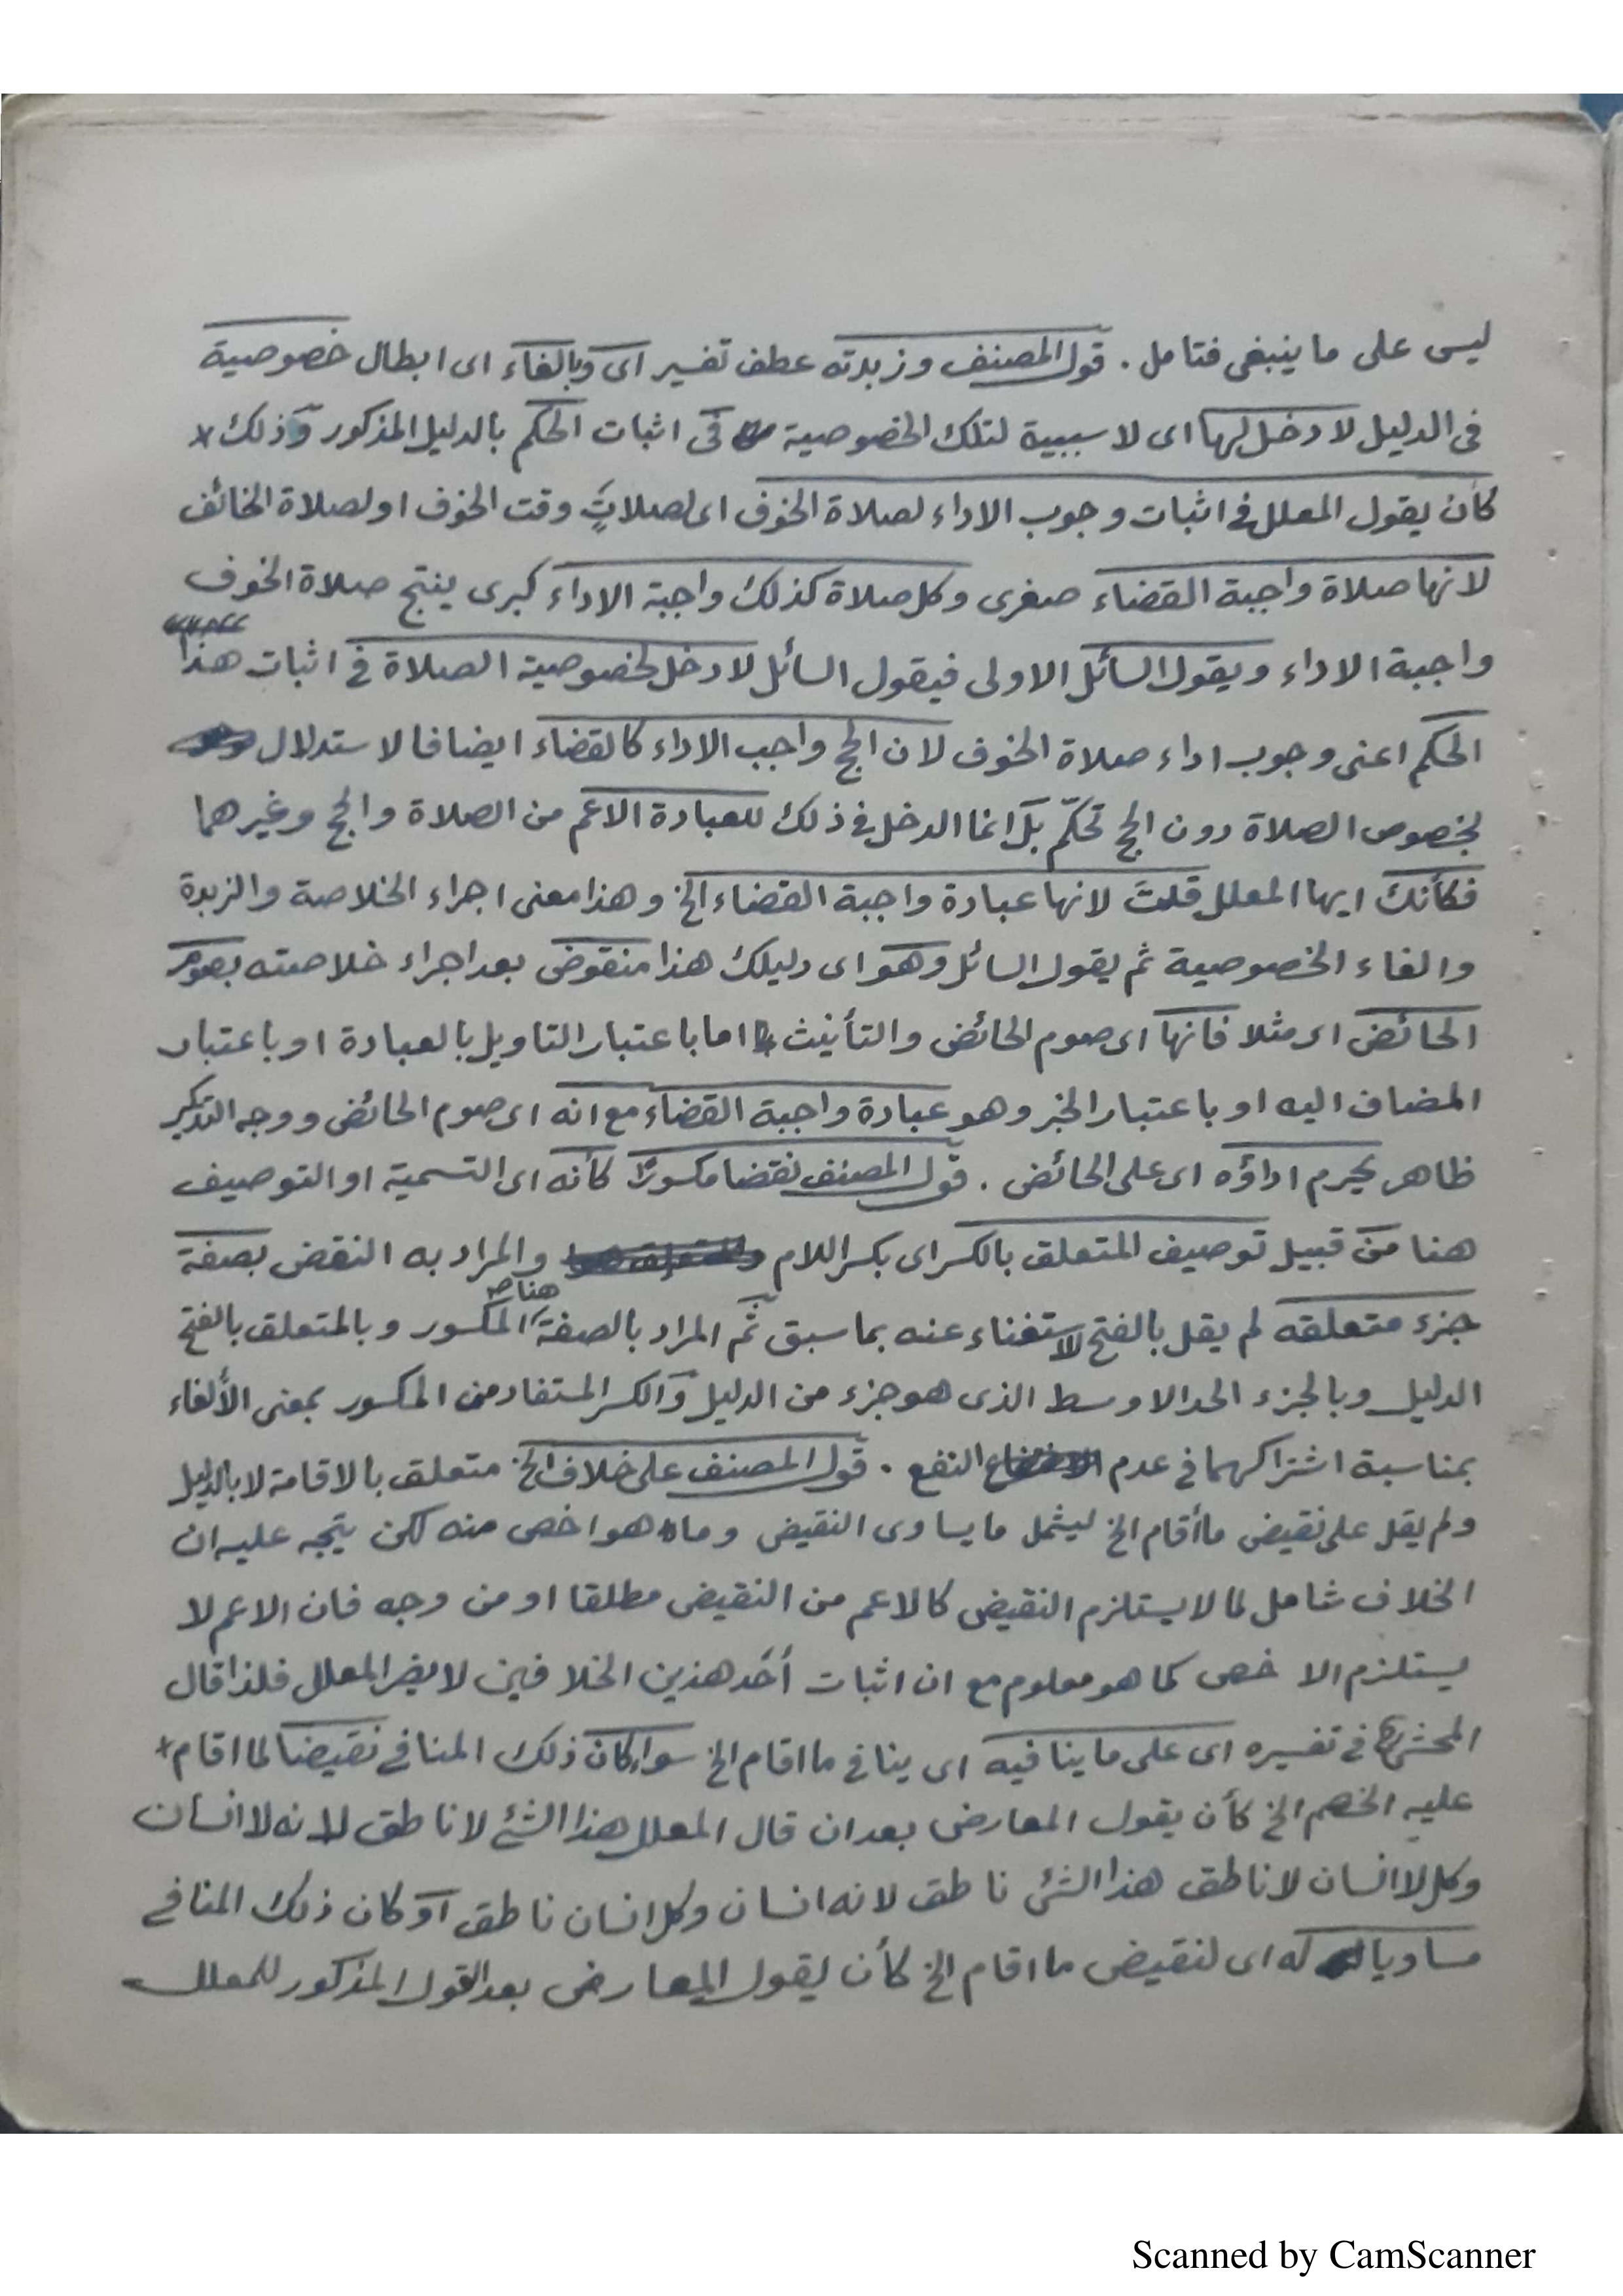 ليس على ما ينبغى فتامل . قول المصنف وزبدته عطف تفسير اى وبالغاء اى ابطال خصوصية
فى الدليل لا دخل لها اى لا سببية لتلك الخصوصية فى اثبات الحكم بالدليل المذكور وذلك
كأن يقول المعلل فى اثبات وجوب الاداء لصلاة الخوف اى لصلاتٍ وقت الخوف او لصلاة الخائف
لانها صلاة واجبة القضاء صغرى وكل صلاة كذلك واجبة الاداء كبرى ينتج صلاة الخوف
واجبة الاداء ويقول السائل الاولى فيقول السائل لا دخل لخصوصية الصلاة فى اثبات هذا
الحكم اعنى وجوب اداء صلاة الخوف لان الحج واجب الاداء كالقضاء ايضا فالاستدلال
بخصوص الصلاة دون الحج تحكّم بل انما الدخل فى ذلك للعبادة الاعم من الصلاة والحج وغيرهما
فكأنك ايها المعلل قلتَ لانها عبادة واجبة القضاء الخ وهذا معنى اجراء الخلاصة والزبدة
والغاء الخصوصية ثم يقول السائل وهو اى دليلك هذا منقوض بعد اجراء خلاصته بصوم
الحائض اى مثلا فانها اى صوم الحائض والتأنيث اما باعتبار التاويل بالعبادة او باعتبار
المضاف اليه او باعتبار الخبر وهو عبادة واجبة القضاء مع انه اى صوم الحائض ووجه التذكير
ظاهر يحرم اداؤه اى على الحائض . قول المصنف نقضا مكسورًا كأنه اى التسمية او التوصيف
هنا من قبيل توصيف المتعلق بالكسر اى بكسر اللام والمراد به النقض بصفة
جزء متعلقه لم يقل بالفتح لاستغناء عنه بما سبق ثم المراد بالصفة هنا المكسور وبالمتعلق بالفتح
الدليل وبالجزء الحد الاوسط الذى هو جزء من الدليل والكسر المستفاد من المكسور بمعنى الألغاء
بمناسبة اشتراكهما فى عدم النفع . قول المصنف على خلاف الخ متعلق بالاقامة لا بالدليل
ولم يقل على نقيض ما أقام الخ ليشمل ما يساوى النقيض وما هو اخص منه لكن يتجه عليه ان
الخلاف شامل لما لا يستلزم النقيض كالاعم من النقيض مطلقا او من وجه فان الاعم لا
يستلزم الاخص كما هو معلوم مع ان اثبات أحد هذين الخلافين لا يضر المعلل فلذا قال
المحشى فى تفسيره اى على ما ينافيه اى ينافى ما اقام الخ سواء كان ذلك المنافى نقيضا لما اقام
عليه الخصم الخ كأن يقول المعارض بعد ان قال المعلل هذا الشئ لا ناطق لانه لا انسان
وكل لا انسان لا ناطق هذا الشئ ناطق لانه انسان وكل انسان ناطق او كان ذلك المنافى
مساويا له اى لنقيض ما اقام الخ كأن يقول المعارض بعد القول المذكور للمعلل
Scanned by CamScanner